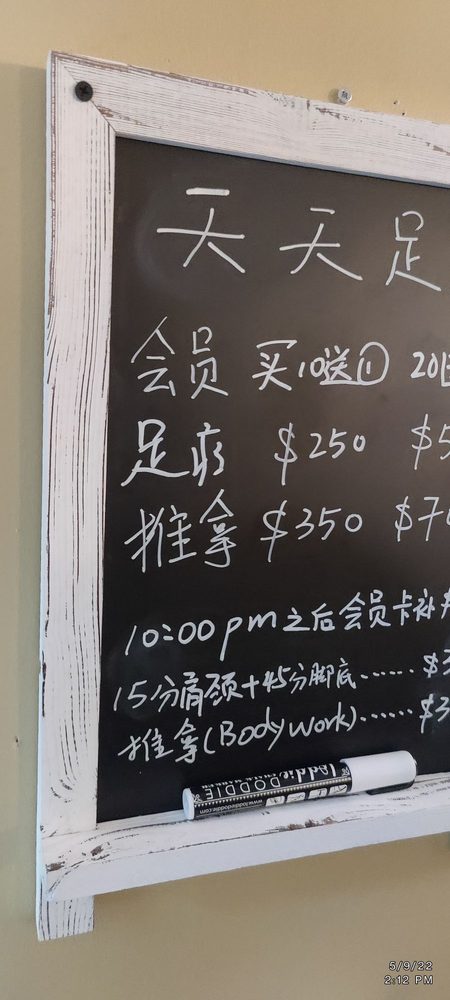 天天足
会员 买10送① 20
足疗 $250 $5
推拿 $350 $7
10:00pm之后会员卡补
15分肩颈+45分脚底...... $3
推拿(Body work)...... $3
DOODIE
5/9/22
2:12 PM